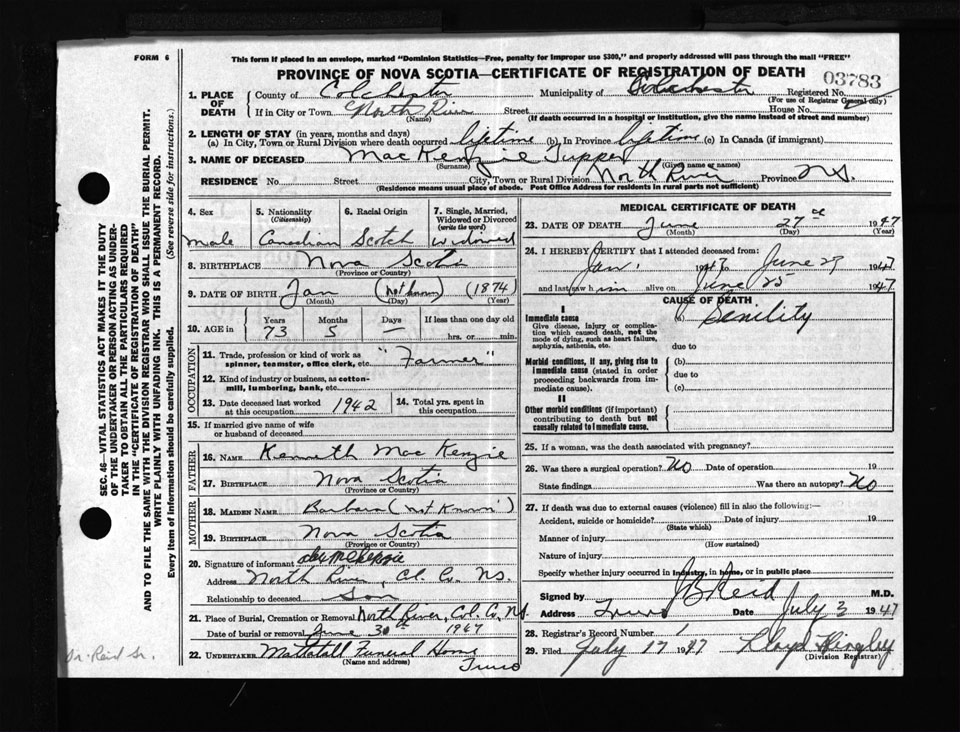 FORM 6
This form if placed in an envelope, marked "Dominion Statistics—Free, penalty for improper use $300," and properly addressed will pass through the mail "FREE"
PROVINCE OF NOVA SCOTIA—CERTIFICATE OF REGISTRATION OF DEATH
03783
1. PLACE OF DEATH County of Colchester Municipality of Colchester Registered No.
(For use of Registrar General only)
If in City or Town North River Street House No.
(Name) (If death occurred in a hospital or institution, give the name instead of street and number)
2. LENGTH OF STAY (in years, months and days)
(a) In City, Town or Rural Division where death occurred lifetime (b) In Province lifetime (c) In Canada (if immigrant)
3. NAME OF DECEASED MacKenzie Tupper
(Surname) (Given name or names)
RESIDENCE No. Street City, Town or Rural Division North River Province N.S.
(Residence means usual place of abode. Post Office Address for residents in rural parts not sufficient)
4. Sex 5. Nationality (Citizenship) 6. Racial Origin 7. Single, Married, Widowed or Divorced (write the word)
male Canadian Scotch Widowed
8. BIRTHPLACE Nova Scotia
(Province or Country)
9. DATE OF BIRTH Jan (Not known) (1874)
(Month) (Day) (Year)
10. AGE in Years Months Days If less than one day
73 5 — hrs. or min.
OCCUPATION
11. Trade, profession or kind of work as spinner, teamster, office clerk, etc. "Farmer"
12. Kind of industry or business, as cotton-mill, lumbering, bank, etc.
13. Date deceased last worked at this occupation 1942 14. Total yrs. spent in this occupation
15. If married give name of wife or husband of deceased
FATHER
16. NAME Kenneth MacKenzie
17. BIRTHPLACE Nova Scotia
(Province or Country)
MOTHER
18. MAIDEN NAME Barbara (not known)
19. BIRTHPLACE Nova Scotia
(Province or Country)
20. Signature of informant McKenzie
Address North River, Col. Co. N.S.
Relationship to deceased Son
21. Place of Burial, Cremation or Removal North River, Col. Co, N.S.
Date of burial or removal June 30th 1947
22. UNDERTAKER Mattatall Funeral Home
(Name and address) Truro
MEDICAL CERTIFICATE OF DEATH
23. DATE OF DEATH June 27 1947
(Month) (Day) (Year)
24. I HEREBY CERTIFY that I attended deceased from:
Jan. 1947 to June 27 1947
and last saw him alive on June 25 1947
CAUSE OF DEATH
I
Immediate cause (a) Senility
Give disease, injury or complication which caused death, not the mode of dying, such as heart failure, asphyxia, asthenia, etc.
due to
Morbid conditions, if any, giving rise to immediate cause (stated in order proceeding backwards from immediate cause).
(b)
due to
(c)
II
Other morbid conditions (if important) contributing to death but not causally related to immediate cause.
25. If a woman, was the death associated with pregnancy?
26. Was there a surgical operation? No Date of operation 19
State findings Was there an autopsy? No
27. If death was due to external causes (violence) fill in also the following:—
Accident, suicide or homicide? Date of injury 19
(State which)
Manner of injury
(How sustained)
Nature of injury
Specify whether injury occurred in industry, in home, or in public place
Signed by J B Reid M.D.
Address Truro Date July 3 1947
28. Registrar's Record Number 1
29. Filed July 17 1947 Lloyd
(Division Registrar)
SEC. 46—VITAL STATISTICS ACT MAKES IT THE DUTY
OF THE UNDERTAKER OR PERSON ACTING AS UNDERTAKER
TO OBTAIN ALL THE PARTICULARS REQUIRED
IN THE "CERTIFICATE OF REGISTRATION OF DEATH"
AND TO FILE THE SAME WITH THE DIVISION REGISTRAR WHO SHALL ISSUE THE BURIAL PERMIT.
WRITE PLAINLY WITH UNFADING INK. THIS IS A PERMANENT RECORD.
Every item of information should be carefully supplied. (See reverse side for instructions.)
Dr. Reid Sr.